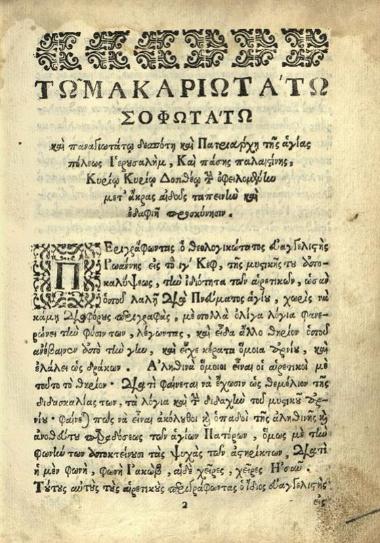 ΤΩ͂ ΜΑΚΑΡΙΩΤΑ´ΤΩ
ΣΟΦΩΤΑ´ΤΩ
καὶ παναγιωτάτῳ δεσπότῃ καὶ Πατριάρχῃ τῆς ἁγίας
πόλεως Ἱερουσαλὴμ, Καὶ πάσης παλαιςίνης,
Κυρίῳ Κυρίῳ Δοσιθέῳ τὴν ὀφειλομένην
μετ' ἄκρας αἰδοῦς ταπεινὴν καὶ
ἐδαφιῆ προσκύνησιν.
ΠΕριγράφωντας ὁ θεολογικώτατος Εὐαγγελιςὴς
Ἰωάννης εἰς τὸ ιγ' Κεφ, τῆς μυςικῆς του ἀπο-
καλύψεως, τὴν ἰδιότητα τῶν αἱρετικῶν, ὡσὰν
ὁποῦ λαλῇ διὰ Πνεύματος ἁγίου, χωρὶς νὰ
κάμῃ διαφόρους περιγραφὰς, μὲ πολλὰ ὀλίγα λόγια φανε-
ρώνει τὴν φύσιν των, λέγωντας, καὶ εἶδα ἄλλο θηρίον ὁποῦ
ἀνέβαινεν ἀπὸ τὴν γῆν, καὶ εἶχε κέρατα ὅμοια ἀρνίου, καὶ
ἐλάλει ὡς δράκων. Ἀληθινὰ ὅμοιοι εἶναι οἱ αἱρετικοὶ μὲ
τοῦτο τὸ θηρίον. Διατὶ φαίνεται νὰ ἔχωσιν ὡς θεμέλιον τῆς
διδασκαλίας των, τὰ λόγια καὶ τὴν διδαχὴν τοῦ μυςικοῦ ἀρ-
νίου· φαίνε) πῶς νὰ εἶναι ἀκόλουθοι καὶ ὀπαδοὶ τῆς ἀληθινῆς καὶ
ἀνοθεύτου παραδόσεως τῶν ἁγίων Πατέρων, ὅμως μὲ τὴν
φωνήν των ἀποκτείνουσι τὰς ψυχὰς τῶν ἀςηρίκτων, Διατὶ
ἡ μὲν φωνὴ, φωνὴ Ἰακὼβ, αἱ δὲ χεῖρες, χεῖρες Ἠσαῦ.
Τούτους αὐτοὺς τοὺς αἱρετικοὺς περιγράφωντας ὁ ἴδιος Εὐαγγελιςὴς
2
εἰς